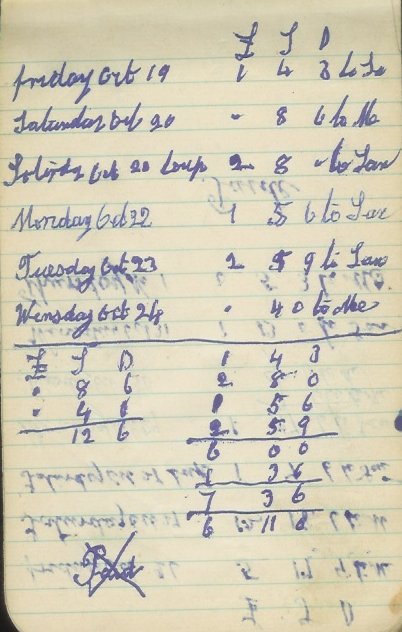 £ S D
Friday Oct 19 1 4 3 to Sax
Saturday Oct 20 - 8 6 to Me
Oct 20 2 8 - to Sax
Monday Oct 22 1 5 6 to Sax
Tuesday Oct 23 2 5 9 to Sax
Wensday Oct 24 . 4 0 to Me
£ S D
. 8 6
. 4 0
12 6
1 4 3
2 8 0
1 5 6
2 5 9
6 0 0
1 3 6
7 3 6
6 11 6
Paid